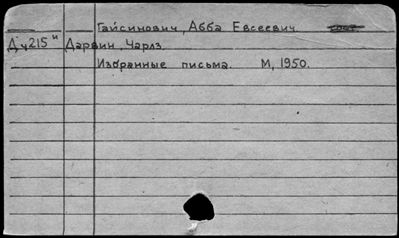 Гайсинович, Абба Евсеевич
Дч215и Дарвин, Чарлз.
Избранные письма. М, 1950.